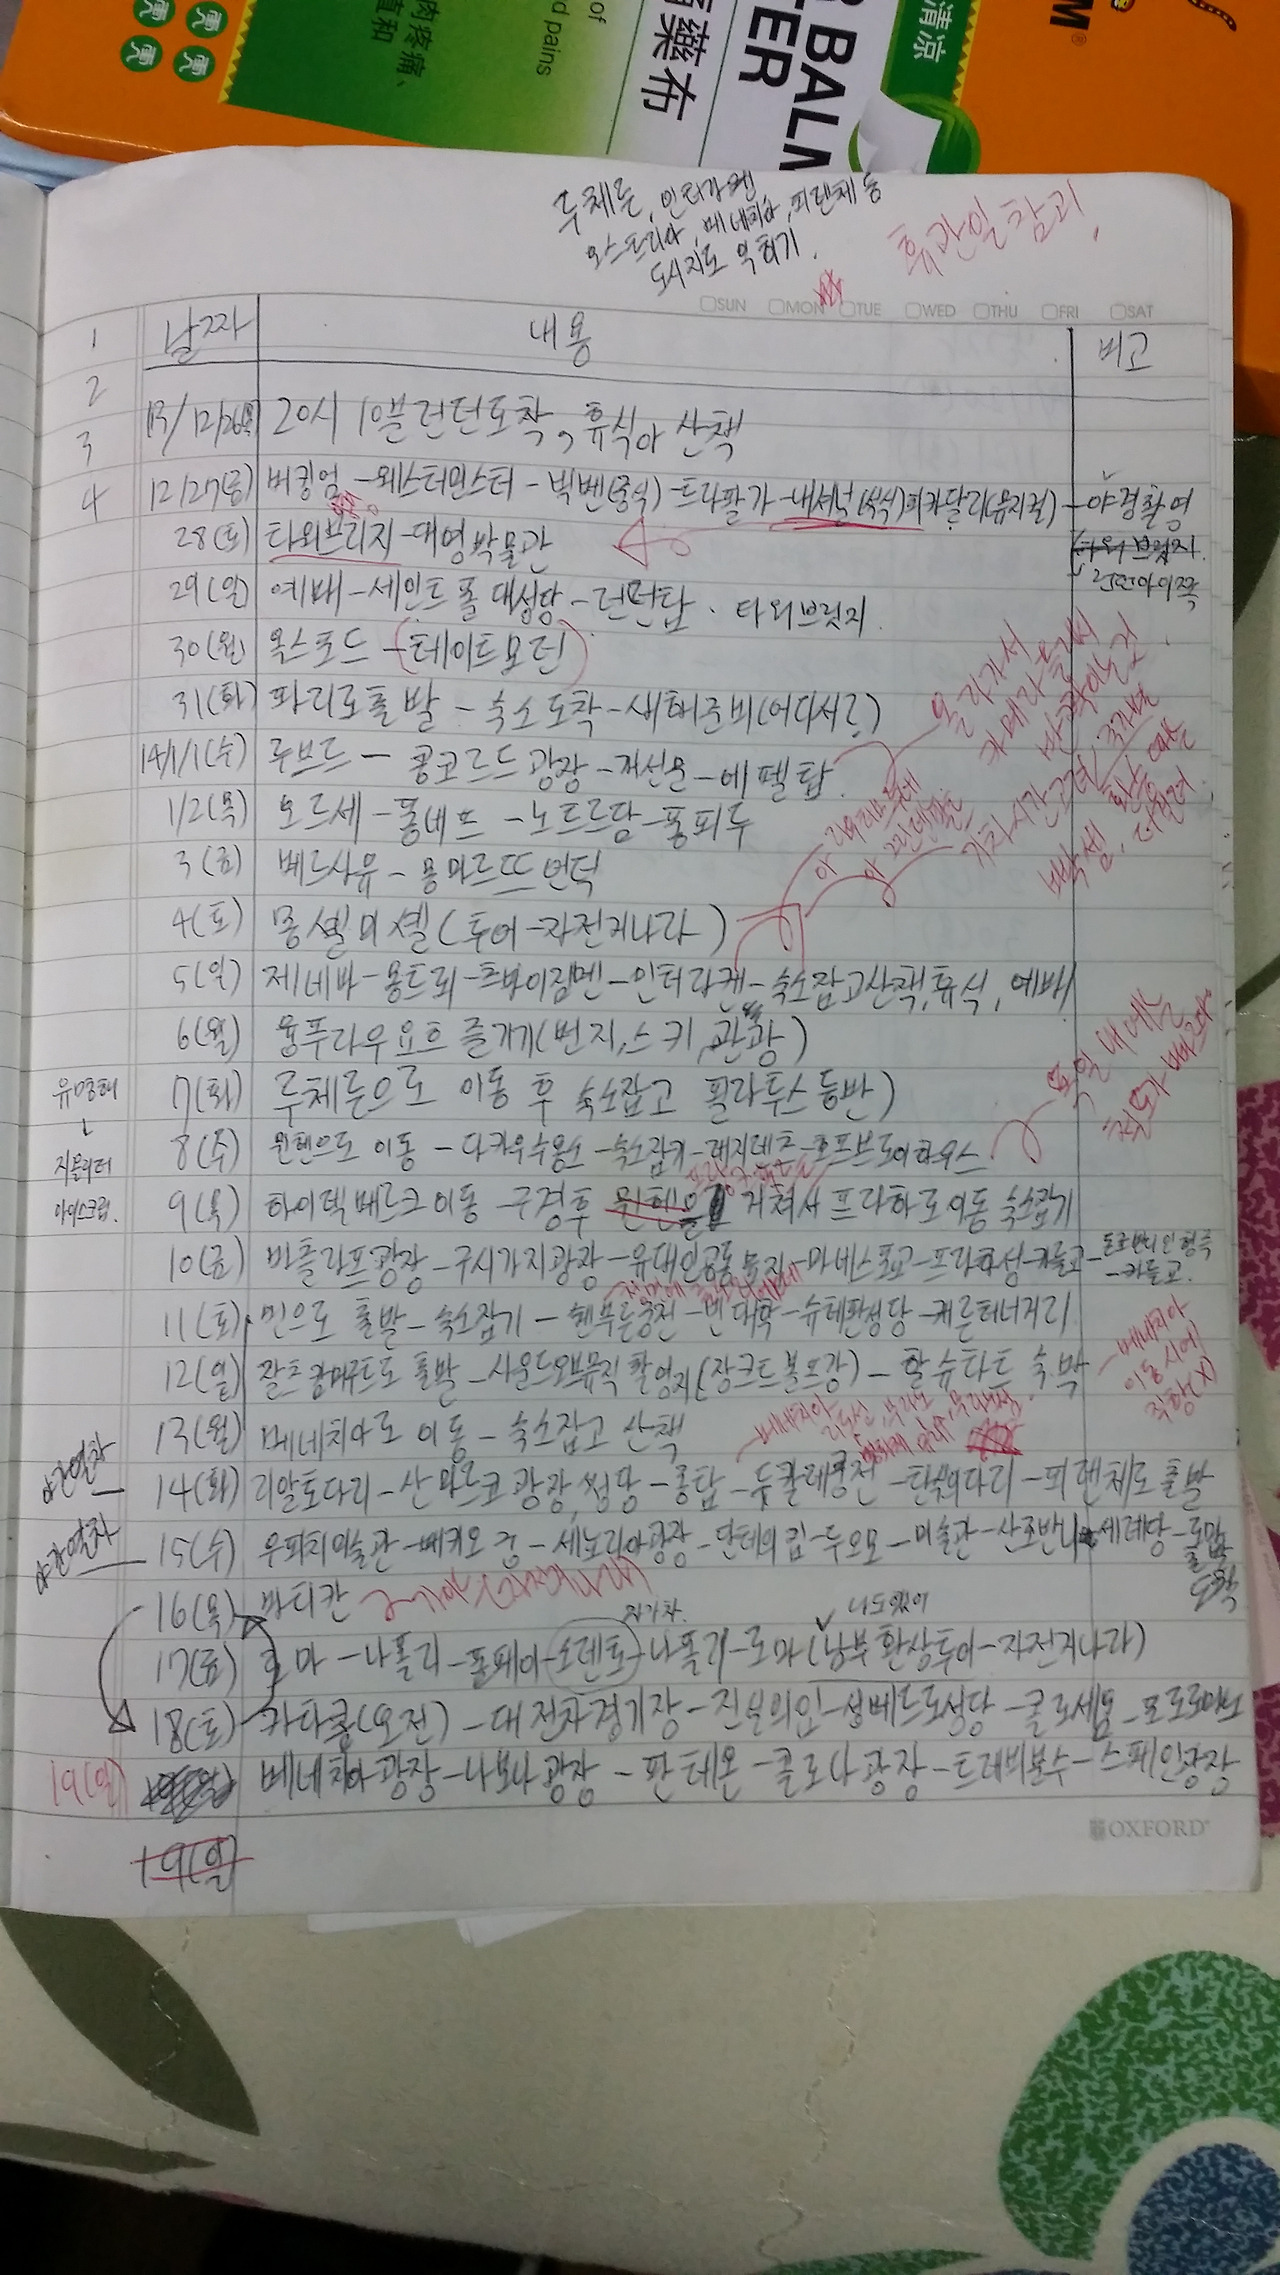 肉疼痛、
of
d pains
藥布
BALM
TER
清凉
M®
루체른, 인터라켄
오스트리아, 베네치아, 피렌체 등
도시지도 익히기.
휴관일 참고.
SUN MON TUE WED THU FRI SAT
1 날짜 내용 비고
2
3 13/12/26(목) 20시 10분 런던도착, 휴식 산책
4 12/27(금) 버킹엄 - 웨스터민스터 - 빅벤(중식) - 트라팔가 - 내셔널(석식) 피카딜리(뮤지컬) - 야경촬영
28(토) 타워브리지 - 대영박물관 타워브릿지.
런던아이쪽
29(일) 예배 - 세인트폴 대성당 - 런던탑. 타워브릿지.
30(월) 옥스포드 - (테이트모던)
31(화) 파리로출발 - 숙소도착 - 새해준비(어디서?)
올라가서
카메라
14/1/1(수) 루브르 - 콩코르드 광장 - 개선문 - 에펠탑.
1/2(목) 오르세 - 퐁네프 - 노트르담 - 퐁피두
기차시간고려
3(금) 베르사유 - 몽마르뜨언덕
4(토) 몽쉘미셸(투어-자전거나라)
5(일) 제네바 - 몽트뢰 - 쯔바이짐멘 - 인터라켄 - 숙소잡고산책, 휴식, 예배
6(월) 융푸라우요흐 즐기기(번지, 스키, 관광)
유명해
7(화) 루체른으로 이동 후 숙소잡고 필라투스등반)
8(수) 뮌헨으로 이동 - 다카우수용소 - 숙소잡기 - 레지덴츠 - 호프브로이하우스
아이스크림.
9(목) 하이델베르크이동 구경후 뮌헨 거쳐서 프라하로이동 숙소잡기
10(금) 바츨라프광장 - 구시가지광장 - 유대인공동묘지 - 마네스교 - 프라하성 - 카를교
- 카를교.
11(토) 빈으로 출발 - 숙소잡기 - 쉔부른궁전 - 빈대학 - 슈테판성당 - 케른터너거리
12(일) 잘츠캄머구트로 출발 - 사운드오브뮤직 촬영지(장크트볼프강) - 할슈타트 숙박
베네치아
이동시에
직항(X)
13(월) 베네치아로 이동 - 숙소잡고 산책
베네치아
야간열차 14(화) 리알토다리 - 산마르코광장, 성당 - 종탑 - 두칼레궁전 - 탄식의다리 - 피렌체로 출발
야간열차 15(수) 우피치미술관 - 베키오 궁 - 세뇨리아광장 - 단테의집 - 두오모 - 미술관 - 산조반니세례당 - 로마
도착
16(목) 바티칸
야간차. 나도있어
17(금) 로마 - 나폴리 - 폼페이 - 소렌토 - 나폴리 - 로마(남부환상투어 - 자전거나라)
18(토) 카타콤(오전) - 대전차경기장 - 진실의입 - 성베드로성당 - 콜로세움 - 포로로마노
19(일) 베네치아광장 - 나보나광장 - 판테온 - 콜로나광장 - 트레비분수 - 스페인광장
OXFORD
19(일)